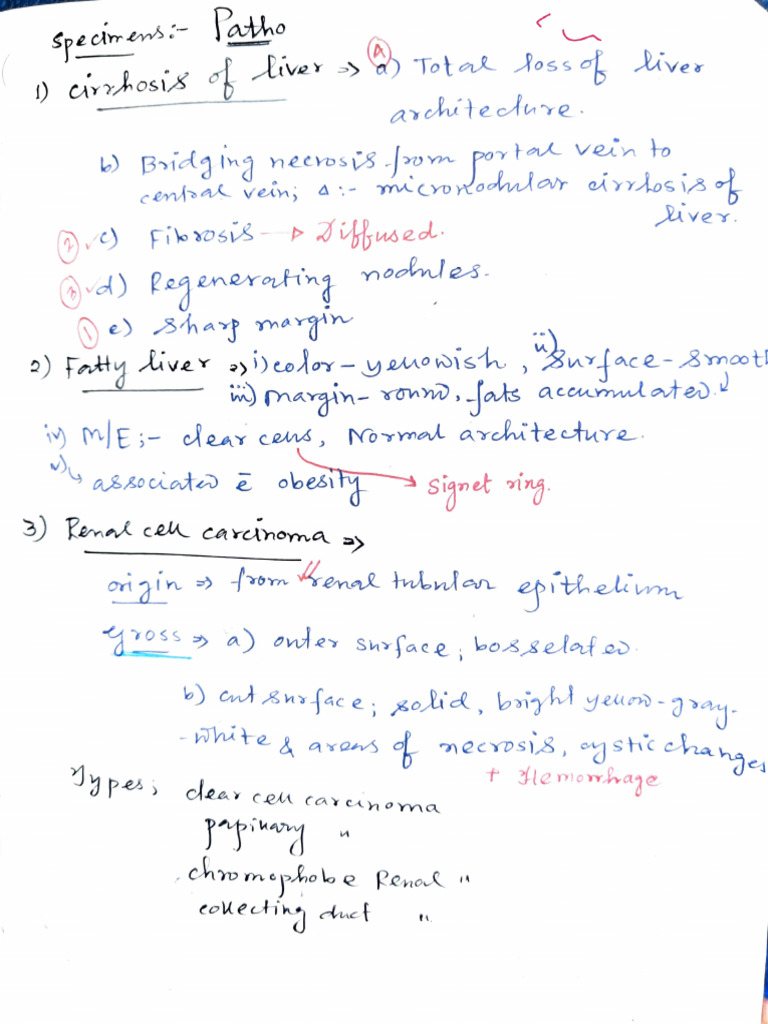 Specimens:- Patho
1) cirrhosis of liver ⇒ (A) a) Total loss of liver
architecture.
b) Bridging necrosis from portal vein to
central vein; Δ:- micronodular cirrhosis of
liver.
(2) ✓c) Fibrosis → Diffused.
(3) ✓d) Regenerating nodules.
(1) e) Sharp margin
2) Fatty liver ⇒ i) color - yellowish, ii) Surface - smooth
iii) margin - round, fats accumulated.
iv) M/E;- clear cells, Normal architecture.
v) ↳ associated c̄ obesity → signet ring.
3) Renal cell carcinoma ⇒
origin ⇒ from renal tubular epithelium
Gross ⇒ a) outer surface; bosselated.
b) cut surface; solid, bright yellow-gray-
-white & areas of necrosis, cystic changes
+ Hemorrhage
Types; clear cell carcinoma
papillary "
chromophobe Renal "
collecting duct "